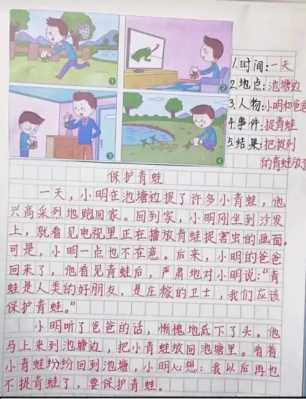 1.时间:一天
2.地点:池塘边
3.人物:小明和爸爸
4.事件:捉青蛙
5.结果:把捉到
的青蛙放了
保护青蛙
一天，小明在池塘边捉了许多小青蛙，他
兴高采列地跑回家。回到家，小明刚坐到沙发
上，就看见电视里正在播放青蛙捉害虫的画面。
可是，小明一点也不在意。后来，小明的爸爸
回来了，他看见青蛙后，严肃地对小明说："青
蛙是人类的好朋友，是庄稼的卫士，我们应该
保护青蛙。"
小明听了爸爸的话，惭愧地底下了头。他
马上来到池塘边，把小青蛙放回池塘里。看着
小青蛙纷纷回到池塘，小明心想：我以后再也
不捉青蛙了，要保护青蛙。